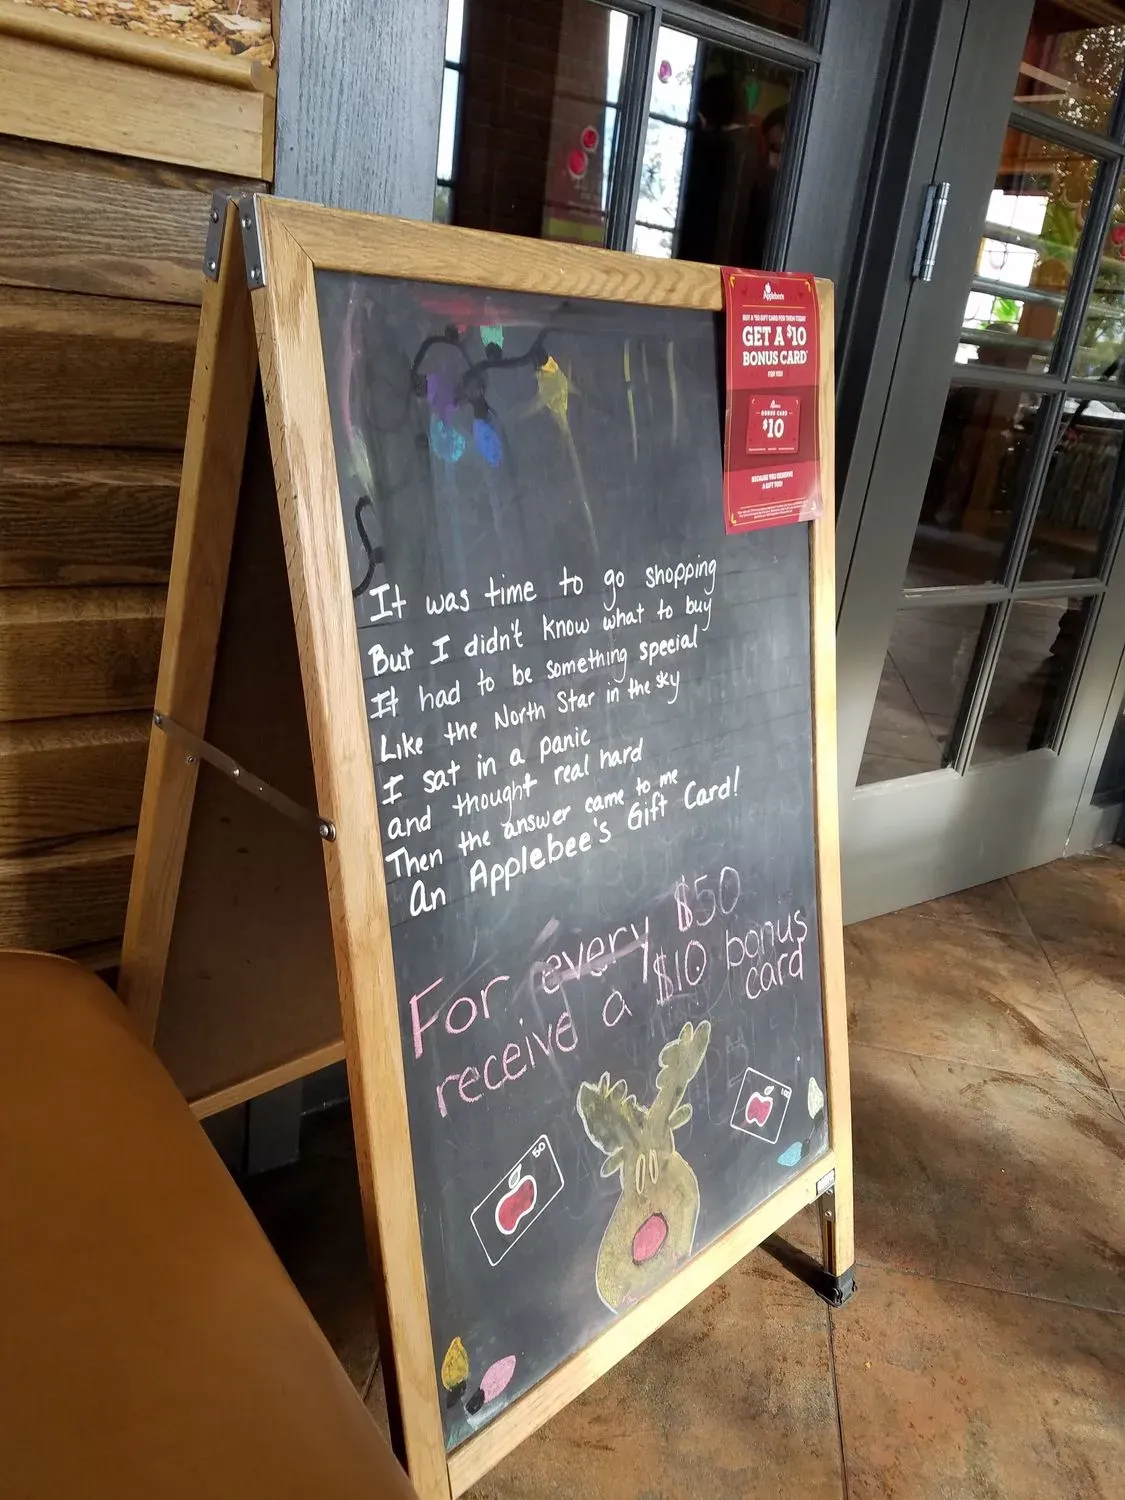 Applebee's
BUY A $50 GIFT CARD FOR THEM TODAY
GET A $10
BONUS CARD
FOR YOU!
BONUS CARD
$10
BECAUSE YOU DESERVE
A GIFT TOO!
It was time to go shopping
But I didn't know what to buy
It had to be something special
Like the North Star in the sky
I sat in a panic
and thought real hard
Then the answer came to me
An Applebee's Gift Card!
For every $50
receive a $10 bonus
card
50